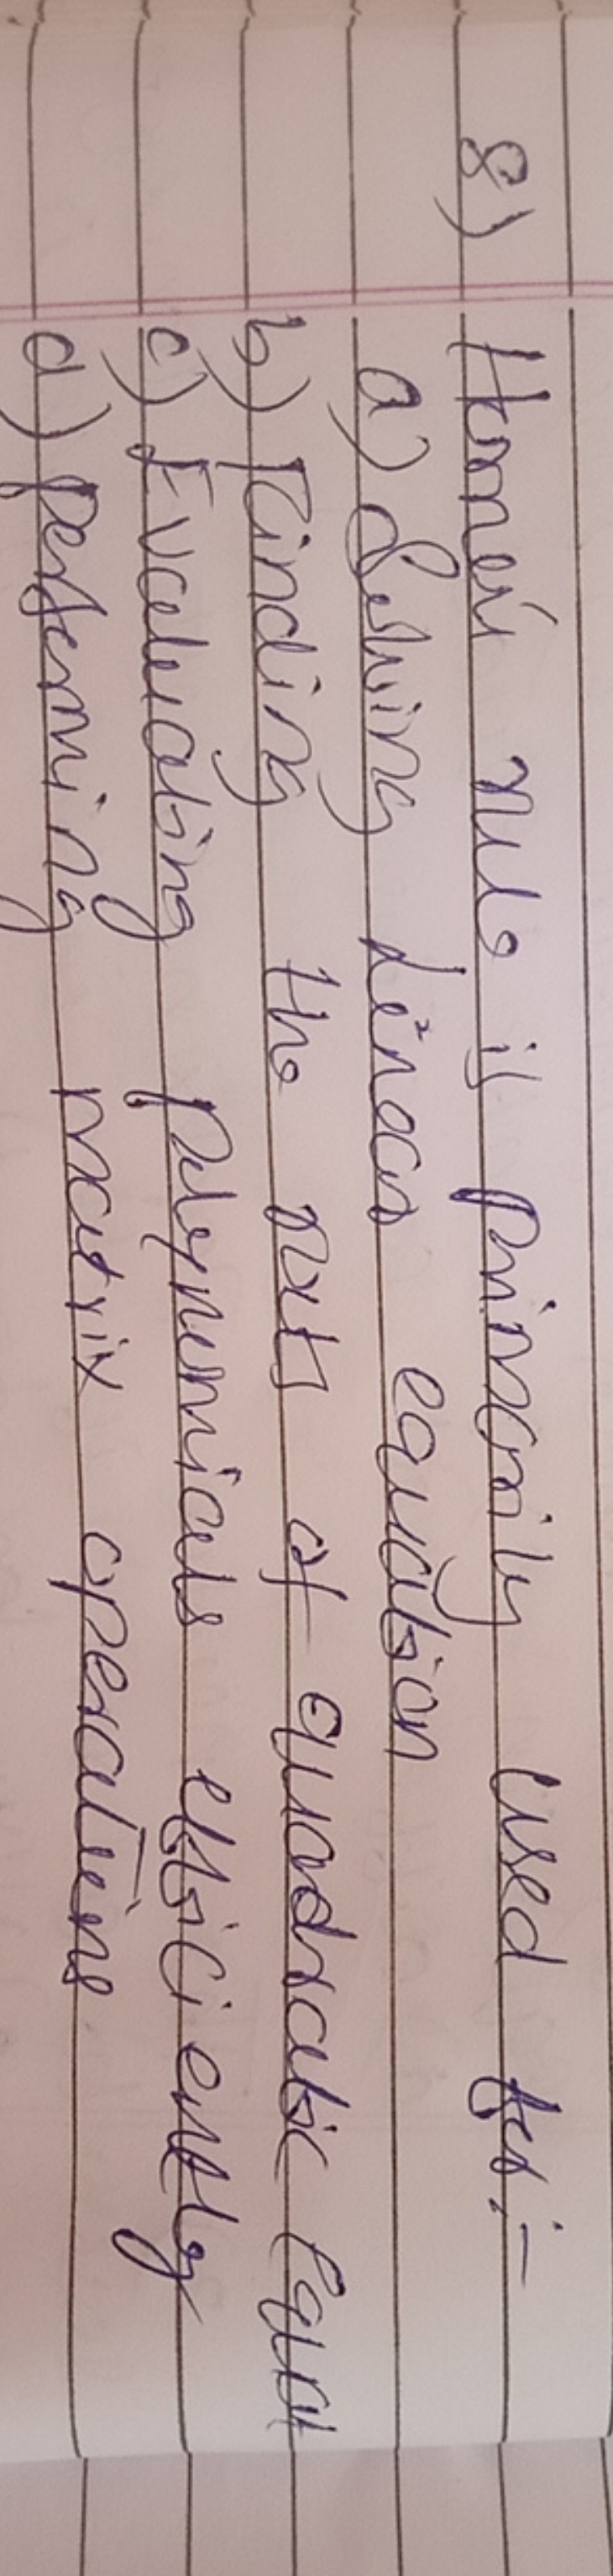 8) Horner's rule is primarily used for :-
a) Solving linear equation
b) Finding the roots of quardratic Equat
c) Evaluating polynomials efficiently
d) performing matrix operations